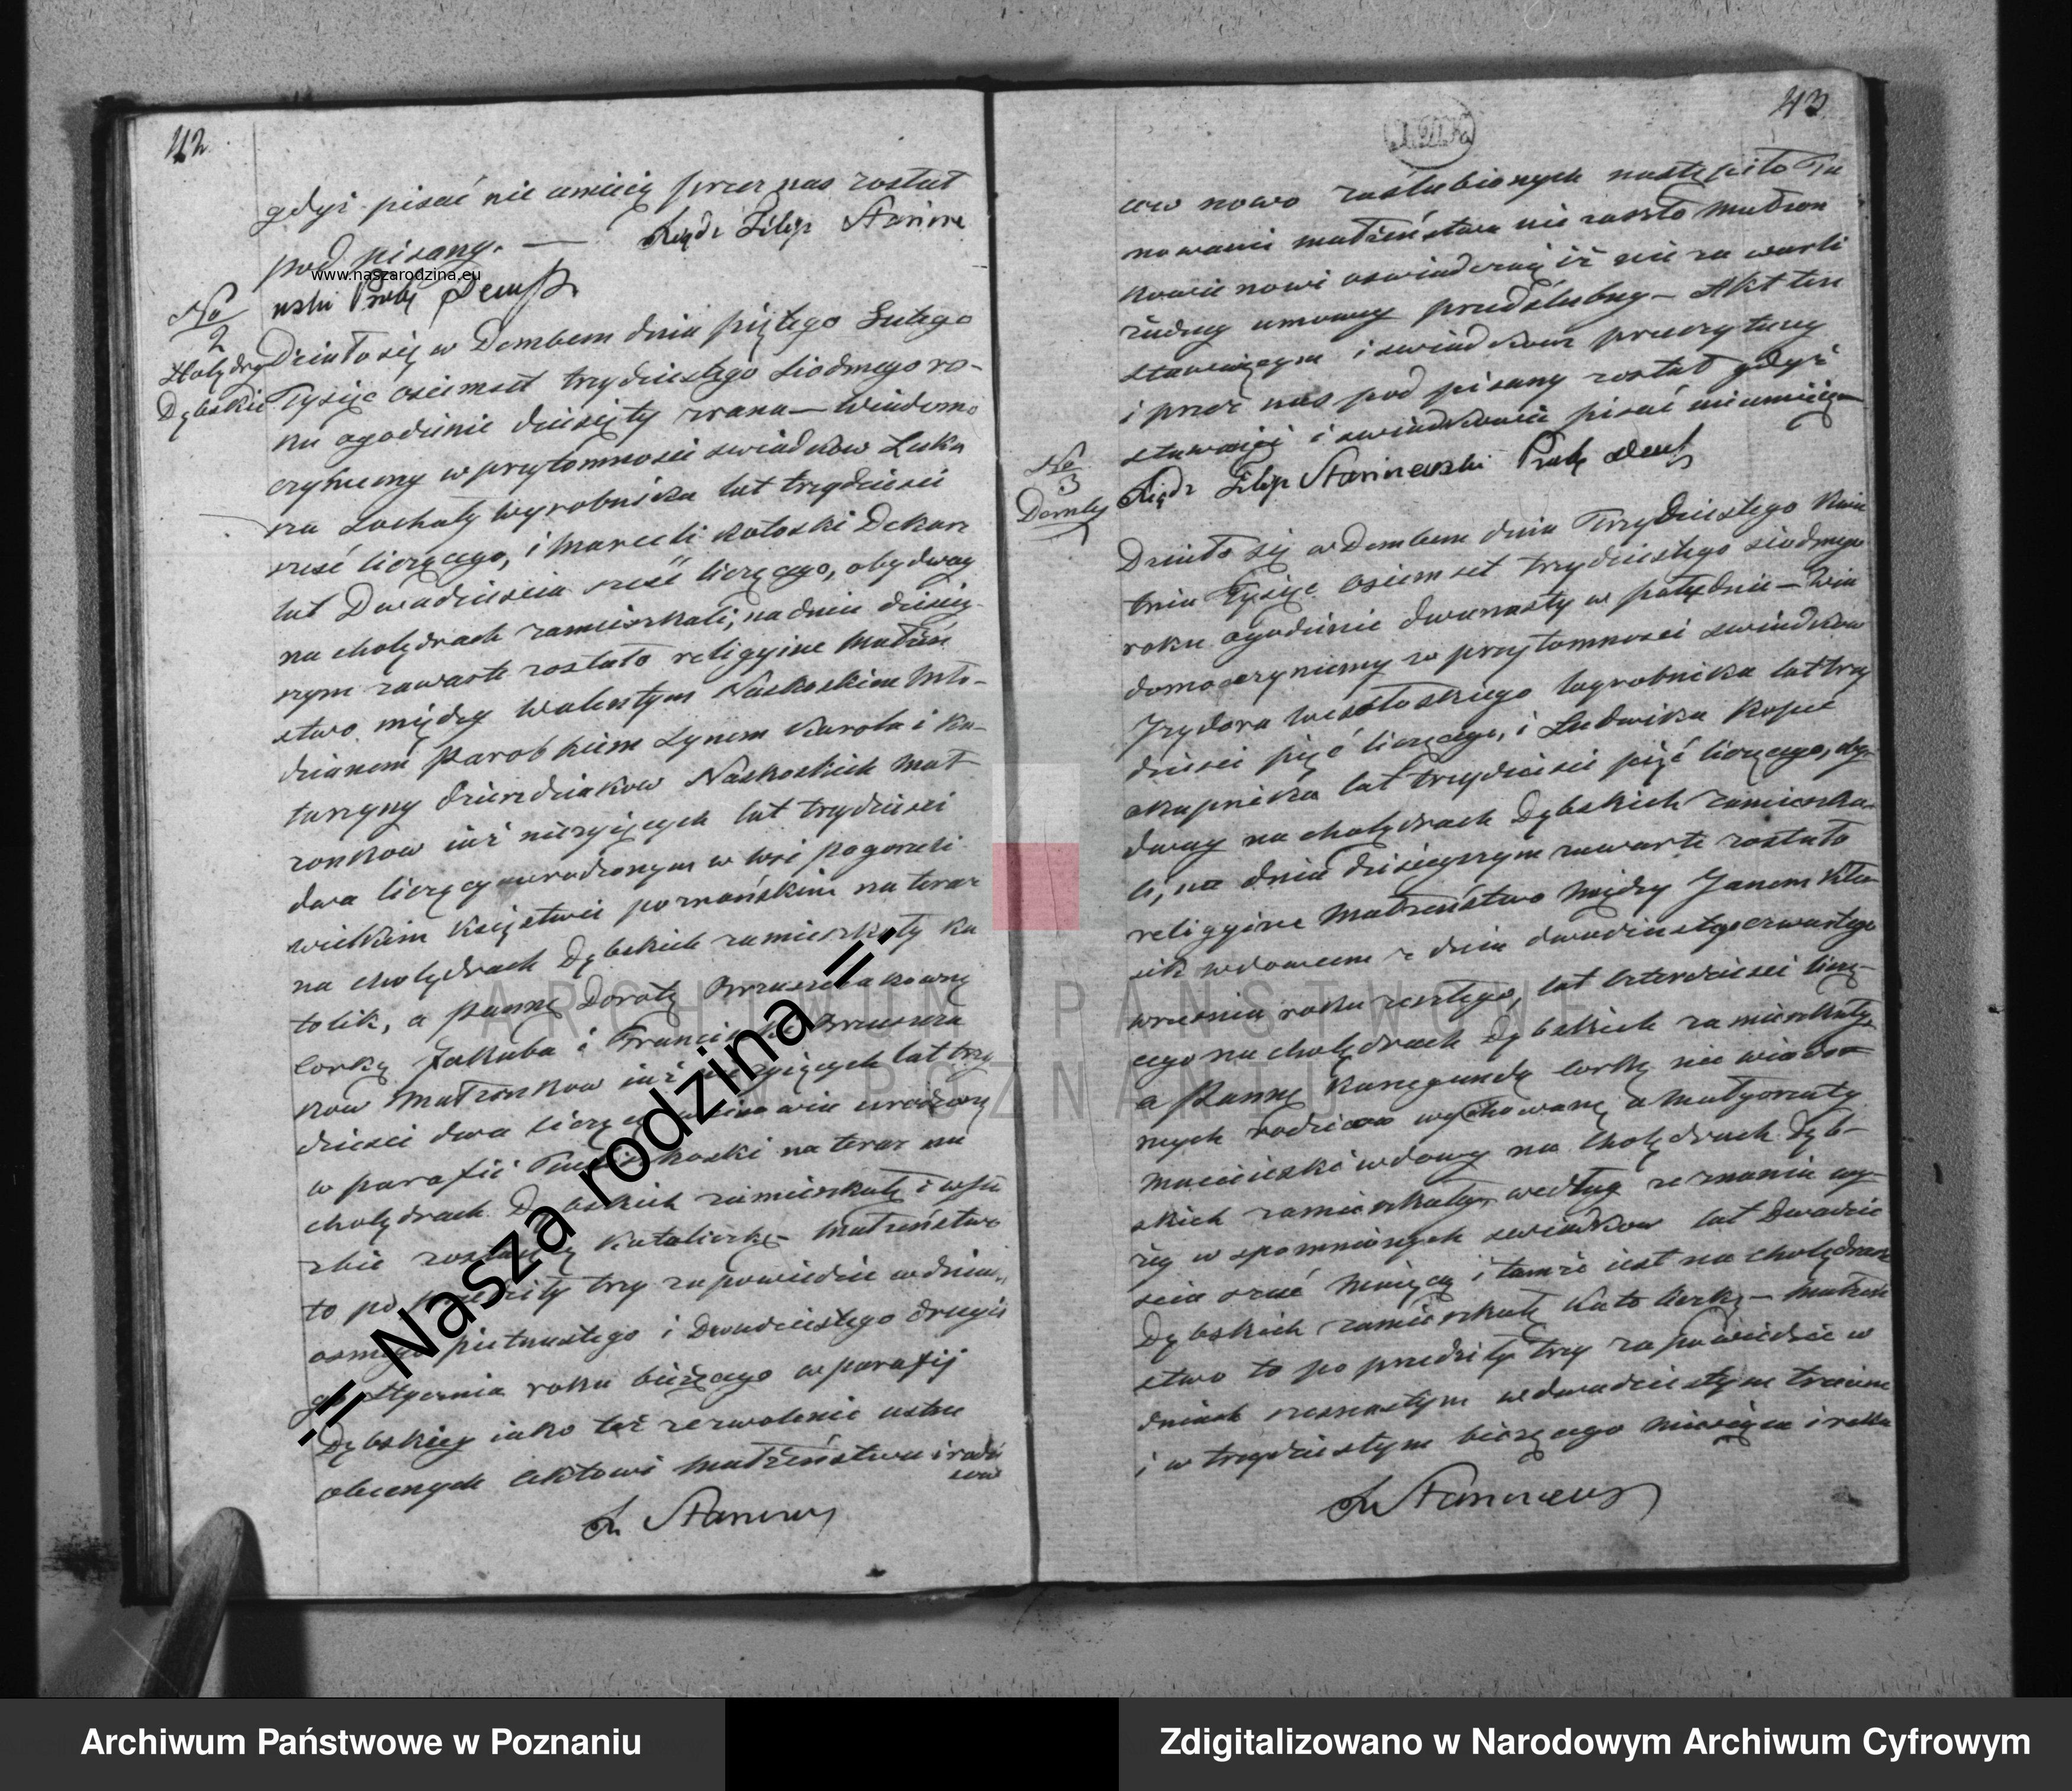 42
gdyż pisać nie umieią przez nas został
pod pisany. — Xiądz Filip Starine
wski Prob Demb
No
2
Holędry
Dębskie
Działo się w Dembem dnia piątego Lutego
Tysiąc osiemset trzydziestego siodmego ro-
ku o godzinie dziesięty zrana — Wiadomo
czyniemy w przytomnosci swiadkow Łuka
sza Sochaty wyrobnika lat trzydziesci
szesć liczącego, i Marceli Kotoski Dekarz
lat Dwadziescia sześć liczącego, obydway
na cholędrach zamieszkali; na dniu dzisiey-
szym zawarte zostało religyine Małżeń
stwo między Walentym Naskoskim Mło-
dzianem Parobkiem Synem Karola i Ka-
tarzyny Naskoskich Mał
zonkow iuż nieżyiących lat trzydziesci
dwa liczący urodzonym w wsi pogorzeli
wielkim Księstwie poznańskim na teraz
na cholędrach Dębskich zamieszkały Ka
tolik, a Panną Dorotą
corką Jakuba i
kow Małżonkow iuż lat trzy
dziesci dwa urodzoną
w parafii na teraz na
cholędrach zamieszkałą i
zbie Katoliczką — Małżeństwo
to po trzy zapowiedzie w dniu
osmego pietnastego i Dwudziestego drugie
go Stycznia roku bieżącego w parafij
Dębskiey iako też zezwolenie ustne
obecnych Aktowi Małżeństwa i rodzi
cow
X Starinews
www.naszarodzina.eu
-= Nasza rodzina =-
43
cow nowo zaślubionych nastąpiło Ta
mowanie małżeństwa nie zaszło Małżon
kowie nowi oswiadczaią iż nie zawarli
żadney umowy przedślubny — Akt ten
stawaiącym i swiadkom przeczytany
i przez nas pod pisany został gdyż
stawaiący i swiadkowie pisać nieumieią
Xiądz Filip Starinewski Prob Demb
No
3
Demby
Działo się w Dembem dnia Trzydziestego Kwie
tnia Tysiąc Osiemset trzydziestego siodmego
roku o godzinie dwunasty w południe — Wia
domo czyniemy w przytomnosci swiadkow
Jzydora Wesołoskiego wyrobnika lat trzy
dziesci pięć liczącego, i Ludwika Kopeć
okupnika lat trzydziesci pięć liczącego, oby-
dway na cholędrach Dębskich zamieszka-
li, na dniu dzisieyszym zawarte zostało
religyine Małżeństwo między Janem
sik wdowcem z dnia dwudziestego czwartego
wrzesnia roku zeszłego, lat czterdziesci liczą-
cego na cholędrach Dębskich zamieszkały
a Panną Kunegundą corką nie wiado
mych rodzicow wychowaną u Małgorzaty
Macieieski wdowy na cholędrach Dęb-
skich zamieszkały, według ze znania wy-
żey w spomnionych swiadkow lat Dwadzie
scia oraz maiącą i tamże iest na cholędrach
Dębskich zamieszkałą Katoliczką — Małżeń
stwo to po przedziły trzy zapowiedzie w
dniach szesnastym w dwudziestym trzecim
i w trzydziestym bieżącego miesiąca i roku
X Starinews
ARCHIWUM PAŃSTWOWE
W POZNANIU
Archiwum Państwowe w Poznaniu
Zdigitalizowano w Narodowym Archiwum Cyfrowym